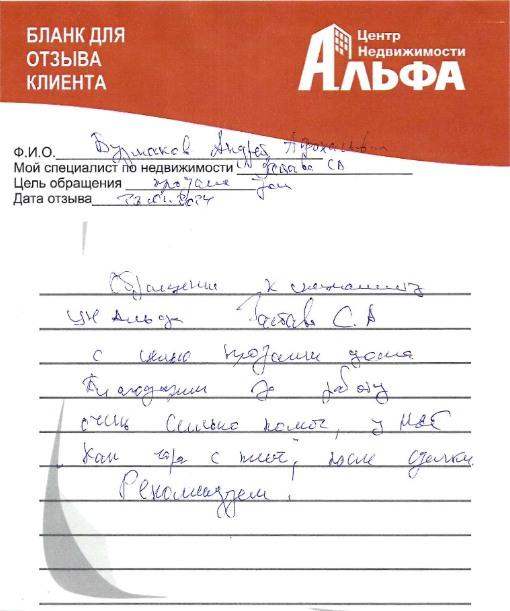 БЛАНК ДЛЯ
ОТЗЫВА
КЛИЕНТА
Центр
Недвижимости
АЛЬФА
Ф.И.О. Бурмаков Андрей
Мой специалист по недвижимости СА
Цель обращения продажа дом
Дата отзыва
Обращение к специалисту
ЦН Альфа С.А
с целью продажи дома
Благодарим за работу
очень сильно помог, у нас
как гора с плеч, после сделки.
Рекомендуем.